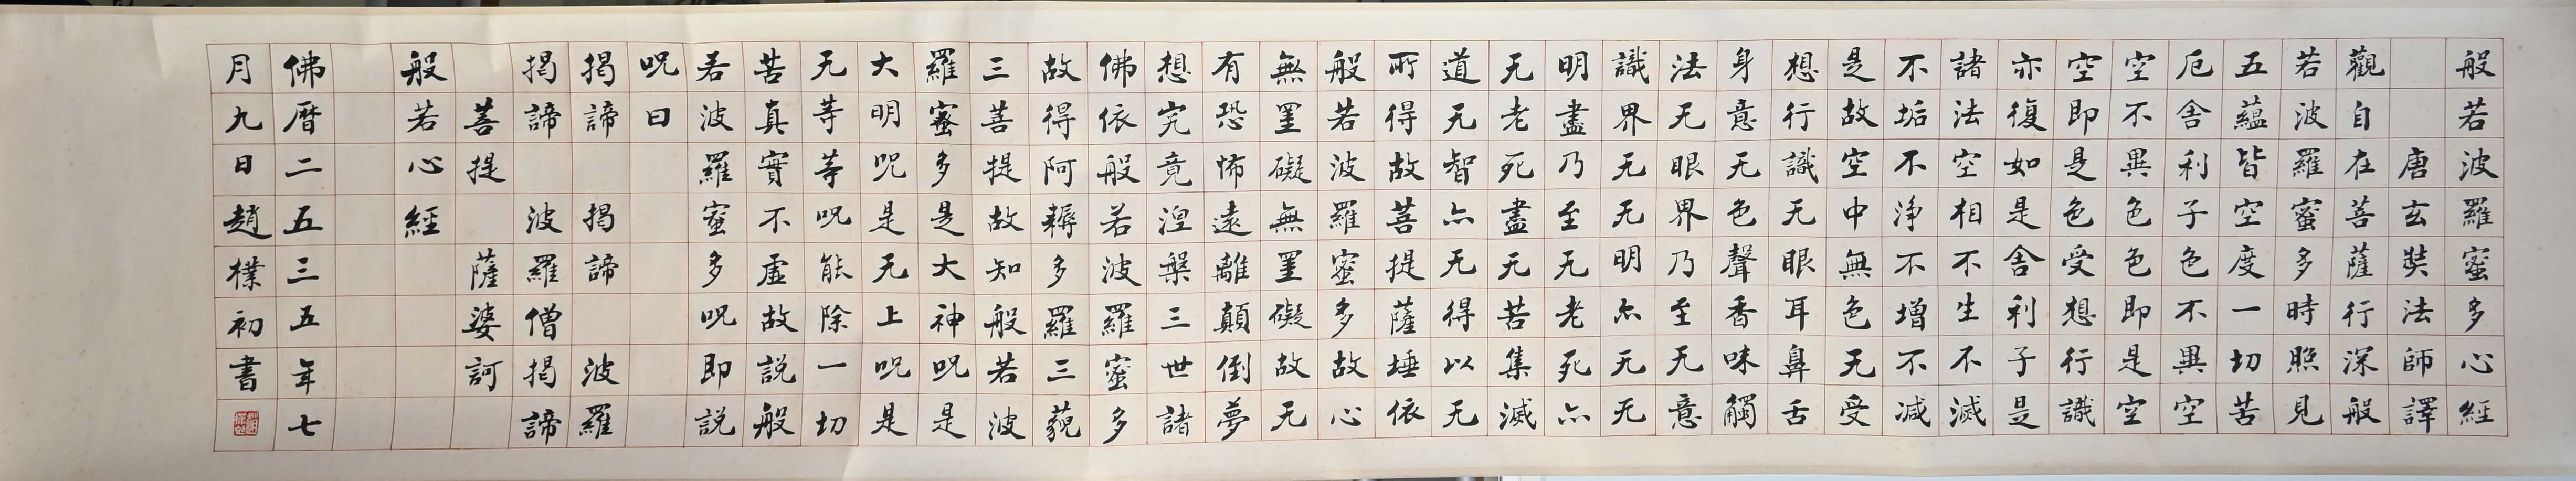 般若波羅蜜多心經
唐玄奘法師譯
觀自在菩薩行深般
若波羅蜜多時照見
五蘊皆空度一切苦
厄舍利子色不異空
空不異色色即是空
空即是色受想行識
亦復如是舍利子是
諸法空相不生不滅
不垢不淨不增不減
是故空中無色无受
想行識无眼耳鼻舌
身意无色聲香味觸
法无眼界乃至无意
識界无无明亦无无
明盡乃至无老死亦
无老死盡无苦集滅
道无智亦无得以无
所得故菩提薩埵依
般若波羅蜜多故心
無罣礙無罣礙故无
有恐怖遠離顛倒夢
想究竟涅槃三世諸
佛依般若波羅蜜多
故得阿耨多羅三藐
三菩提故知般若波
羅蜜多是大神呪是
大明呪是无上呪是
无等等呪能除一切
苦真實不虛故說般
若波羅蜜多呪即說
呪曰
揭諦 揭諦 波羅
揭諦 波羅僧揭諦
菩提 薩婆訶
般若心經
佛暦二五三五年七
月九日趙樸初書